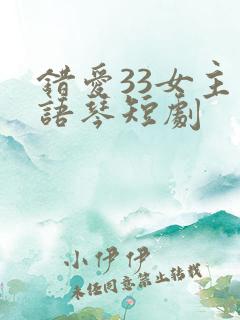 錯愛33女主
語琴短劇
小伊伊
未經同意禁止轉載